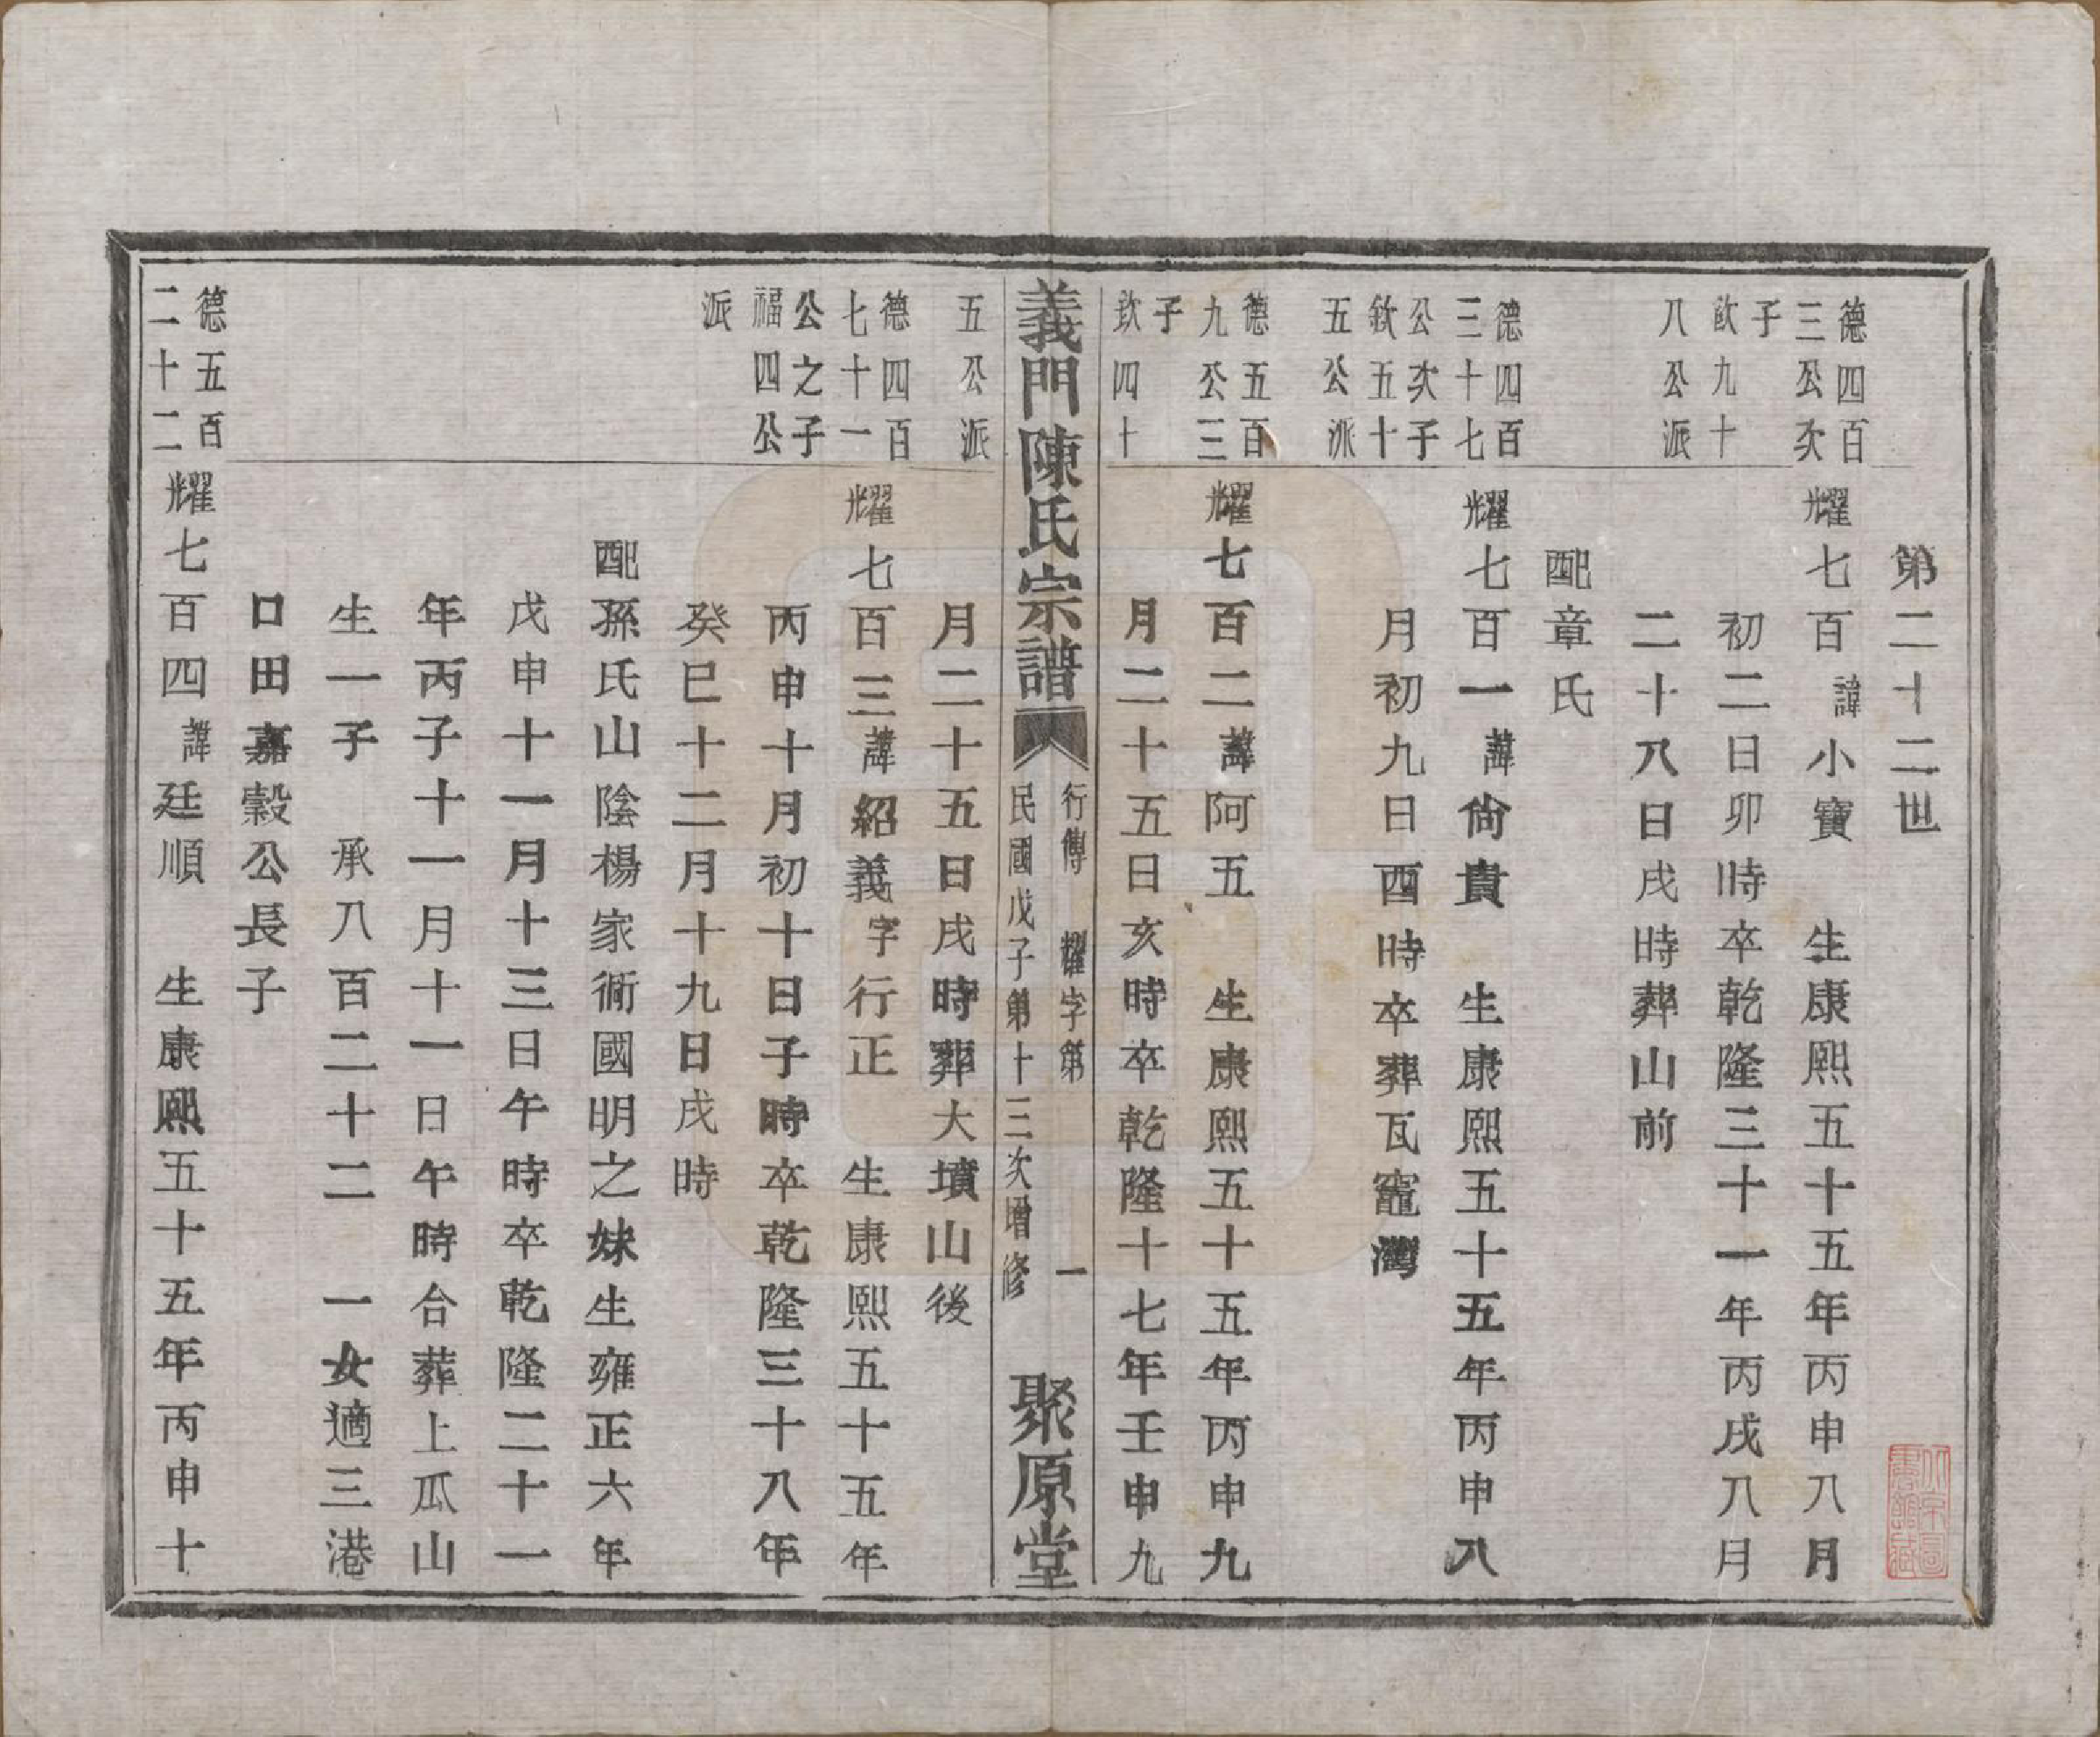 第二十二世
德四百
三公次
子
欽九十
八公派
耀七百諱小寶 生康熙五十五年丙申八月
初二日卯時卒乾隆三十一年丙戌八月
二十八日戌時葬山前
配章氏
德四百
三十七
公次子
欽五十
五公派
耀七百一諱尙貴 生康熙五十五年丙申八
月初九日酉時卒葬瓦竈灣
德五百
九公三
子
欽四十
五公派
耀七百二諱阿五 生康熙五十五年丙申九
月二十五日亥時卒乾隆十七年壬申九
義門陳氏宗譜
行傳 耀字第 一
民國戊子第十三次增修
聚原堂
月二十五日戌時葬大墳山後
德四百
七十一
公之子
福四公
派
耀七百三諱紹義字行正 生康熙五十五年
丙申十月初十日子時卒乾隆三十八年
癸巳十二月十九日戌時
配孫氏山陰楊家衕國明之妹生雍正六年
戊申十一月十三日午時卒乾隆二十一
年丙子十一月十一日午時合葬上瓜山
生一子 承八百二十二 一女適三港
口田嘉穀公長子
德五百
二十二
耀七百四諱廷順 生康熙五十五年丙申十